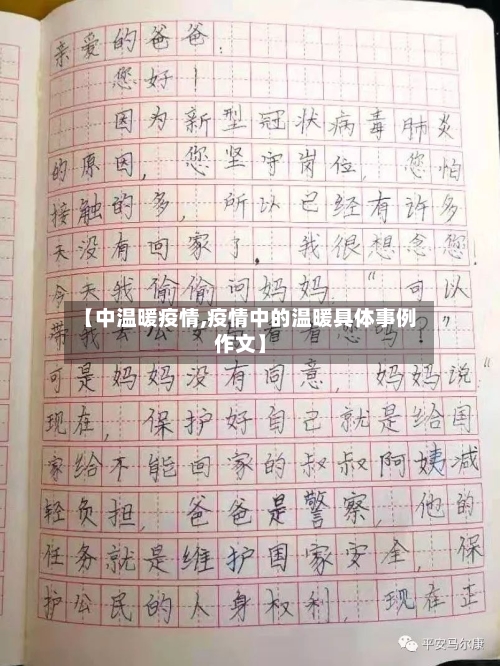 亲爱的爸爸：
您好！
因为新型冠状病毒肺炎
的原因，您坚守岗位，您怕
接触的多，所以已经有许多
天没有回家了。我很想念您！
今天我偷偷问妈妈。“可以
【中温暖疫情,疫情中的温暖具体事例
作文】
带我去公安局看看爸爸吗？”
可是妈妈没有同意，妈妈说：
现在，保护好自己就是给国
家给不能回家的叔叔阿姨减
轻负担，爸爸是警察，他的
任务就是维护国家安全，保
护公民的人身权利，现在正
平安马尔康